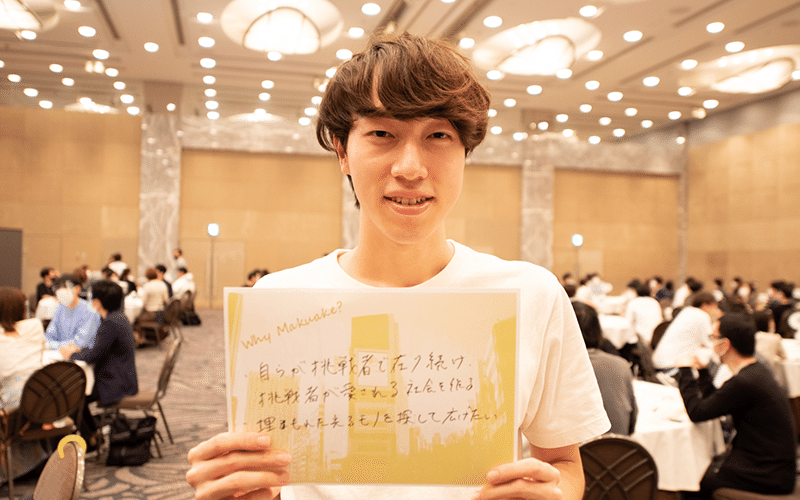 Why Makuake?
・自らが挑戦者で在り続け、
挑戦者が愛される社会を作る
・埋もれた光るモノを探して広げたい